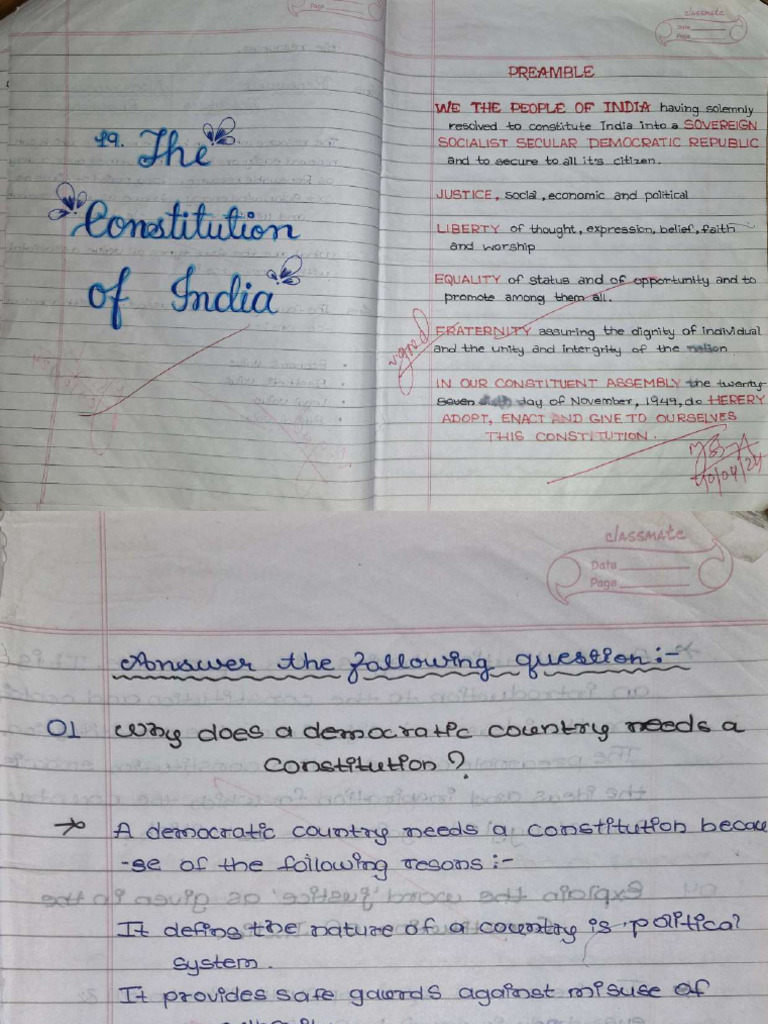 19. The
Constitution
of India
classmate
Date
Page
PREAMBLE
WE THE PEOPLE OF INDIA having solemnly
resolved to constitute India into a SOVEREIGN
SOCIALIST SECULAR DEMOCRATIC REPUBLIC
and to secure to all it's citizen.
JUSTICE, social, economic and political
LIBERTY of thought, expression, belief, faith
and worship
EQUALITY of status and of opportunity and to
promote among them all.
FRATERNITY assuring the dignity of individual
and the unity and intergrity of the nation
IN OUR CONSTITUENT ASSEMBLY the twenty-
seven day of November, 1949, do HERERY
ADOPT, ENACT AND GIVE TO OURSELVES
THIS CONSTITUTION.
signed
classmate
Date
Page
Answer the following question:-
01 Why does a democratic country needs a
constitution?
→ A democratic country needs a constitution becau
-se of the following resons :-
It defins the nature of a country is political
system.
It provides safe gawrds against misuse of